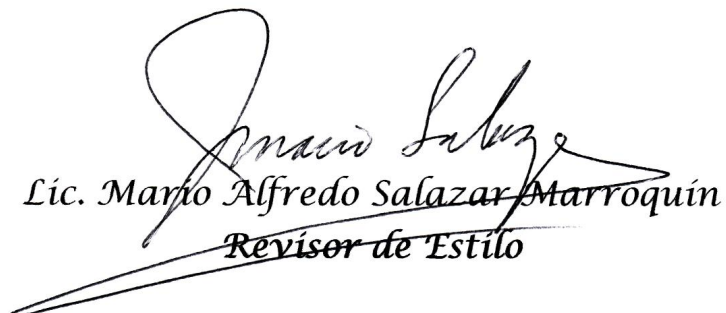 Lic. Mario Alfredo Salazar Marroquín
Revisor de Estilo